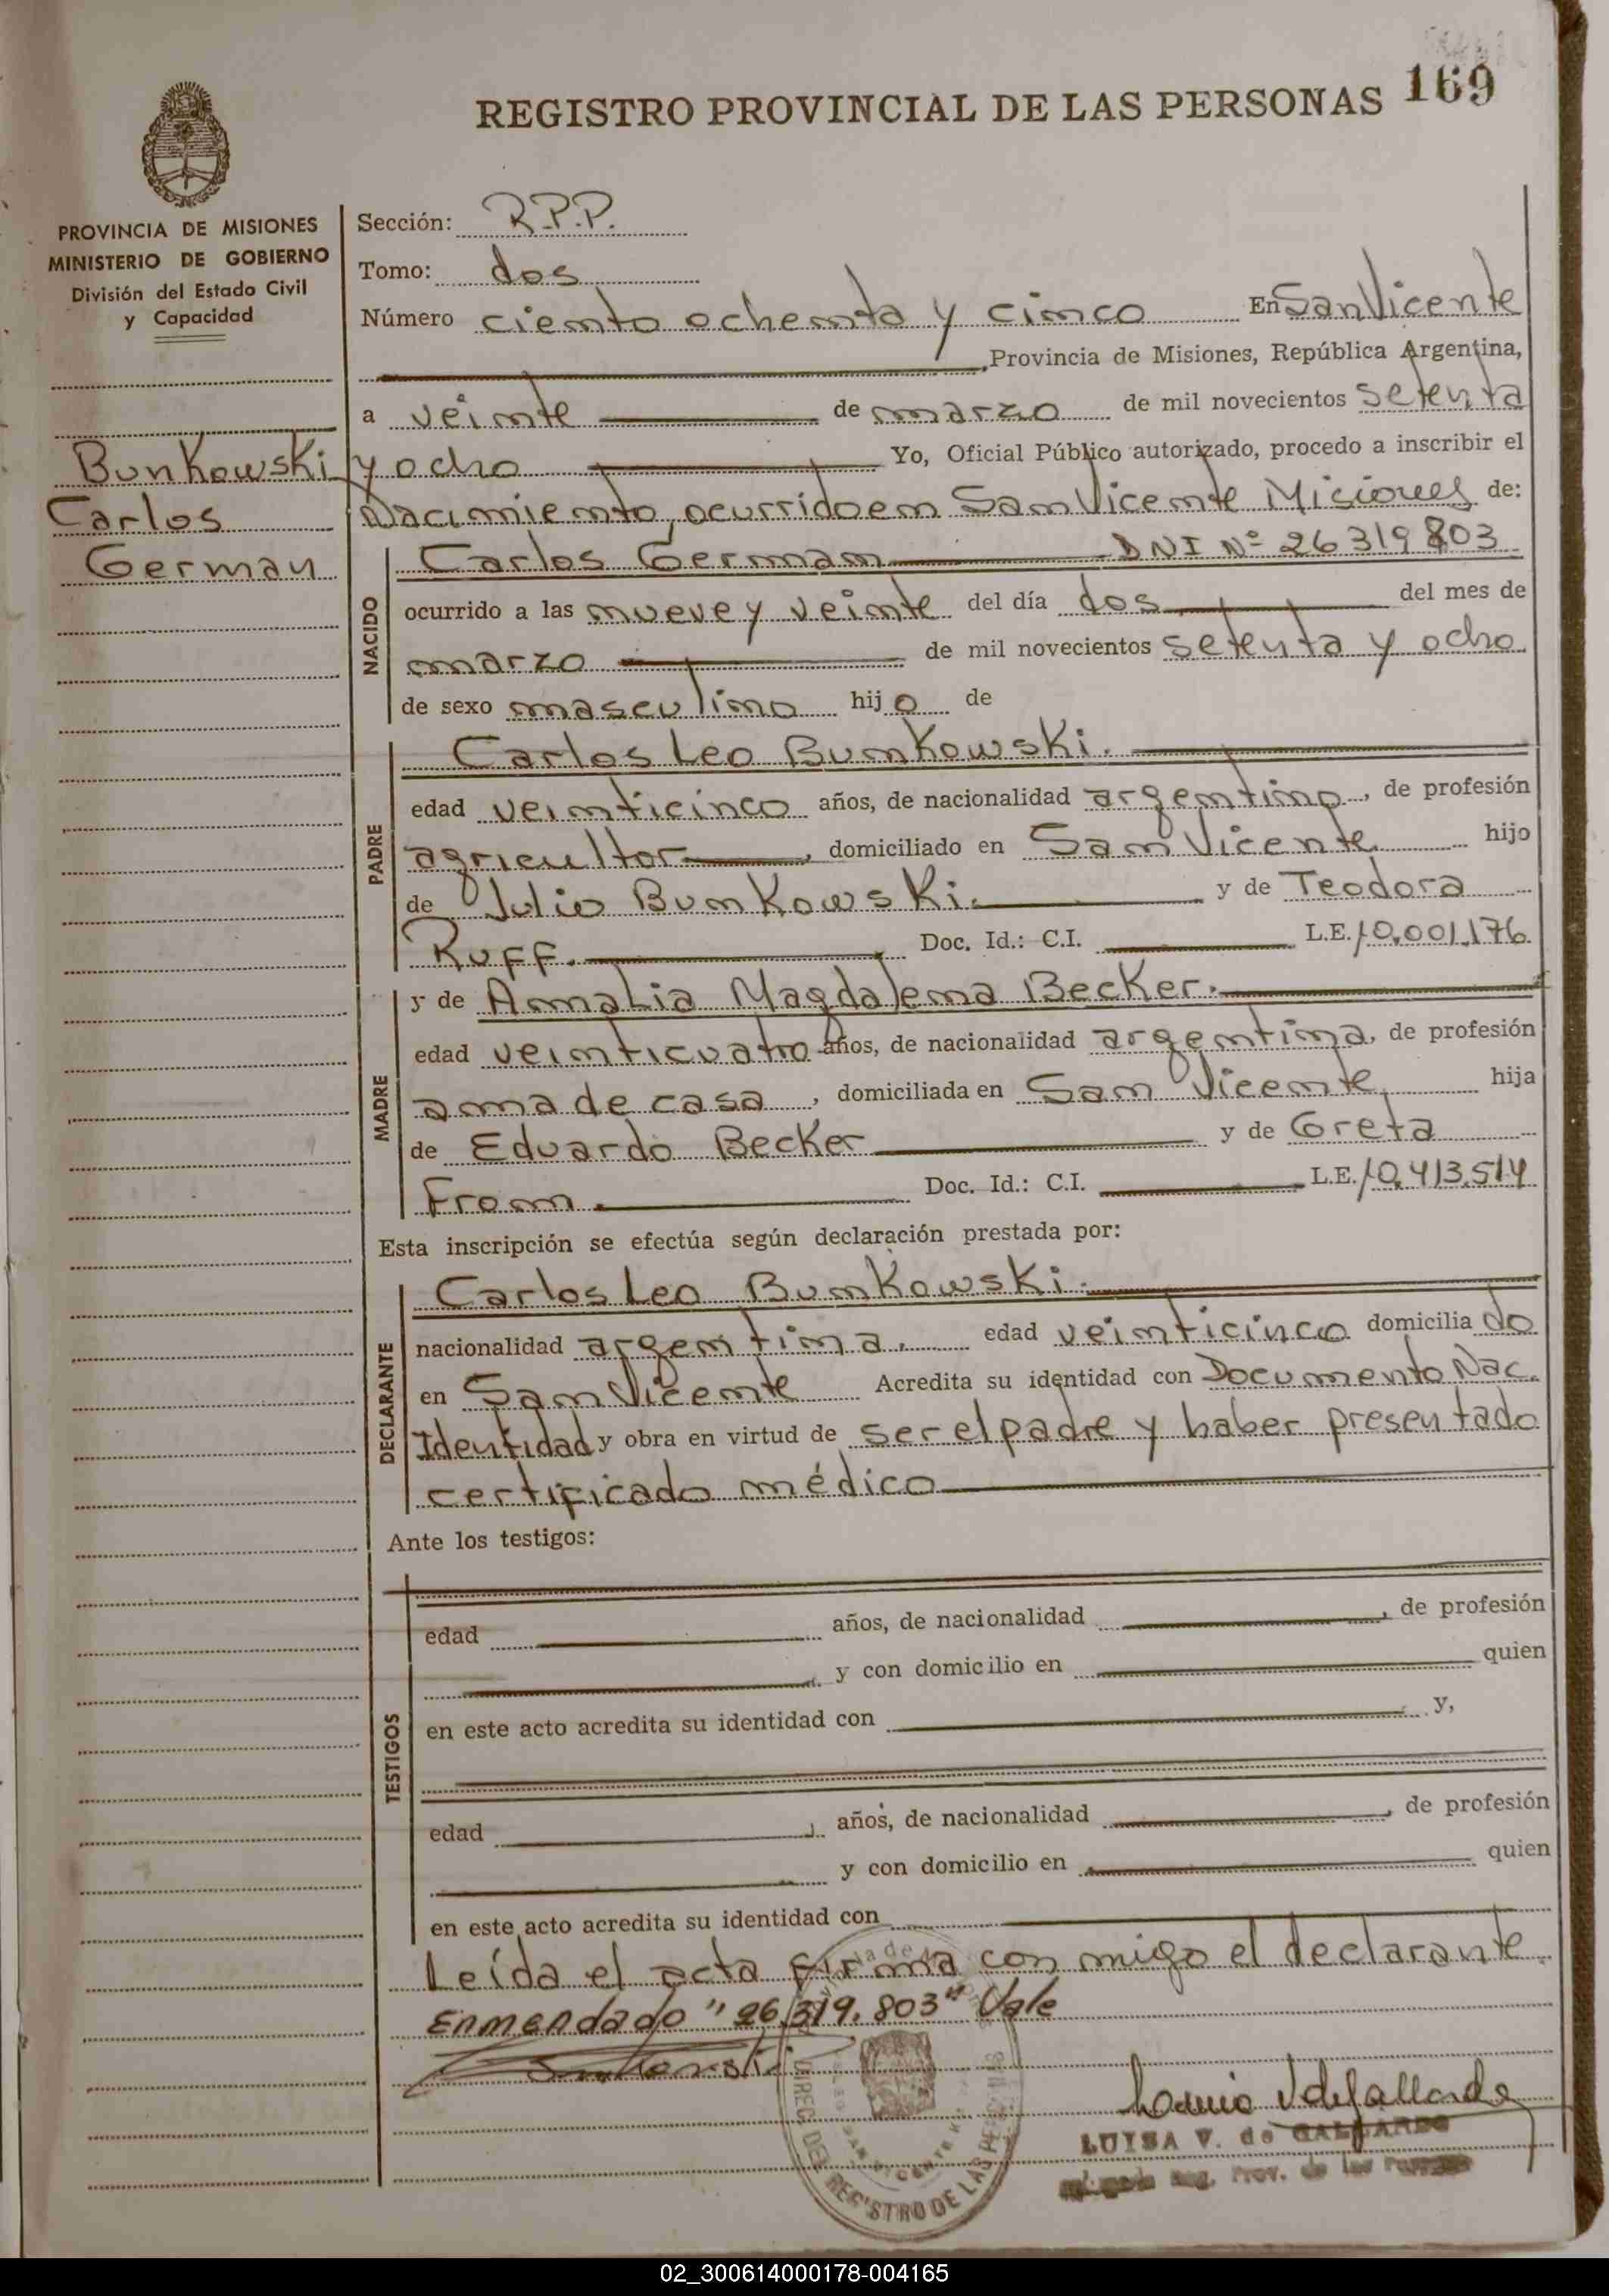 REGISTRO PROVINCIAL DE LAS PERSONAS 169
PROVINCIA DE MISIONES
MINISTERIO DE GOBIERNO
División del Estado Civil
y Capacidad
Bunkowski
Carlos
German
Sección: R.P.P.
Tomo: dos
Número ciento ochenta y cinco En San Vicente
, Provincia de Misiones, República Argentina,
a veinte de marzo de mil novecientos setenta
y ocho Yo, Oficial Público autorizado, procedo a inscribir el
Nacimiento, ocurrido en San Vicente Misiones de:
NACIDO
Carlos German DNI Nº 26319803
ocurrido a las nueve y veinte del día dos del mes de
marzo de mil novecientos setenta y ocho
de sexo masculino hijo de
PADRE
Carlos Leo Bunkowski.
edad veinticinco años, de nacionalidad argentino, de profesión
agricultor, domiciliado en San Vicente hijo
de Julio Bunkowski. y de Teodora
Ruff. Doc. Id.: C.I. L.E. 10.001.176
MADRE
y de Amalia Magdalena Becker.
edad veinticuatro años, de nacionalidad argentina, de profesión
ama de casa, domiciliada en San Vicente, hija
de Eduardo Becker y de Greta
From. Doc. Id.: C.I. L.E. 10.413.514
Esta inscripción se efectúa según declaración prestada por:
DECLARANTE
Carlos Leo Bunkowski.
nacionalidad argentina, edad veinticinco domiciliado
en San Vicente Acredita su identidad con Documento Nac.
Identidad y obra en virtud de ser el padre y haber presentado
certificado médico
Ante los testigos:
TESTIGOS
edad años, de nacionalidad , de profesión
y con domicilio en quien
en este acto acredita su identidad con y,
edad años, de nacionalidad , de profesión
y con domicilio en quien
en este acto acredita su identidad con
Leída el acta firma con migo el declarante
Enmendado "26.319.803" Vale
REGISTRO DE LAS PERSONAS
LUISA V. de GALLARDO
Reg. Prov. de las Personas
02_300614000178-004165